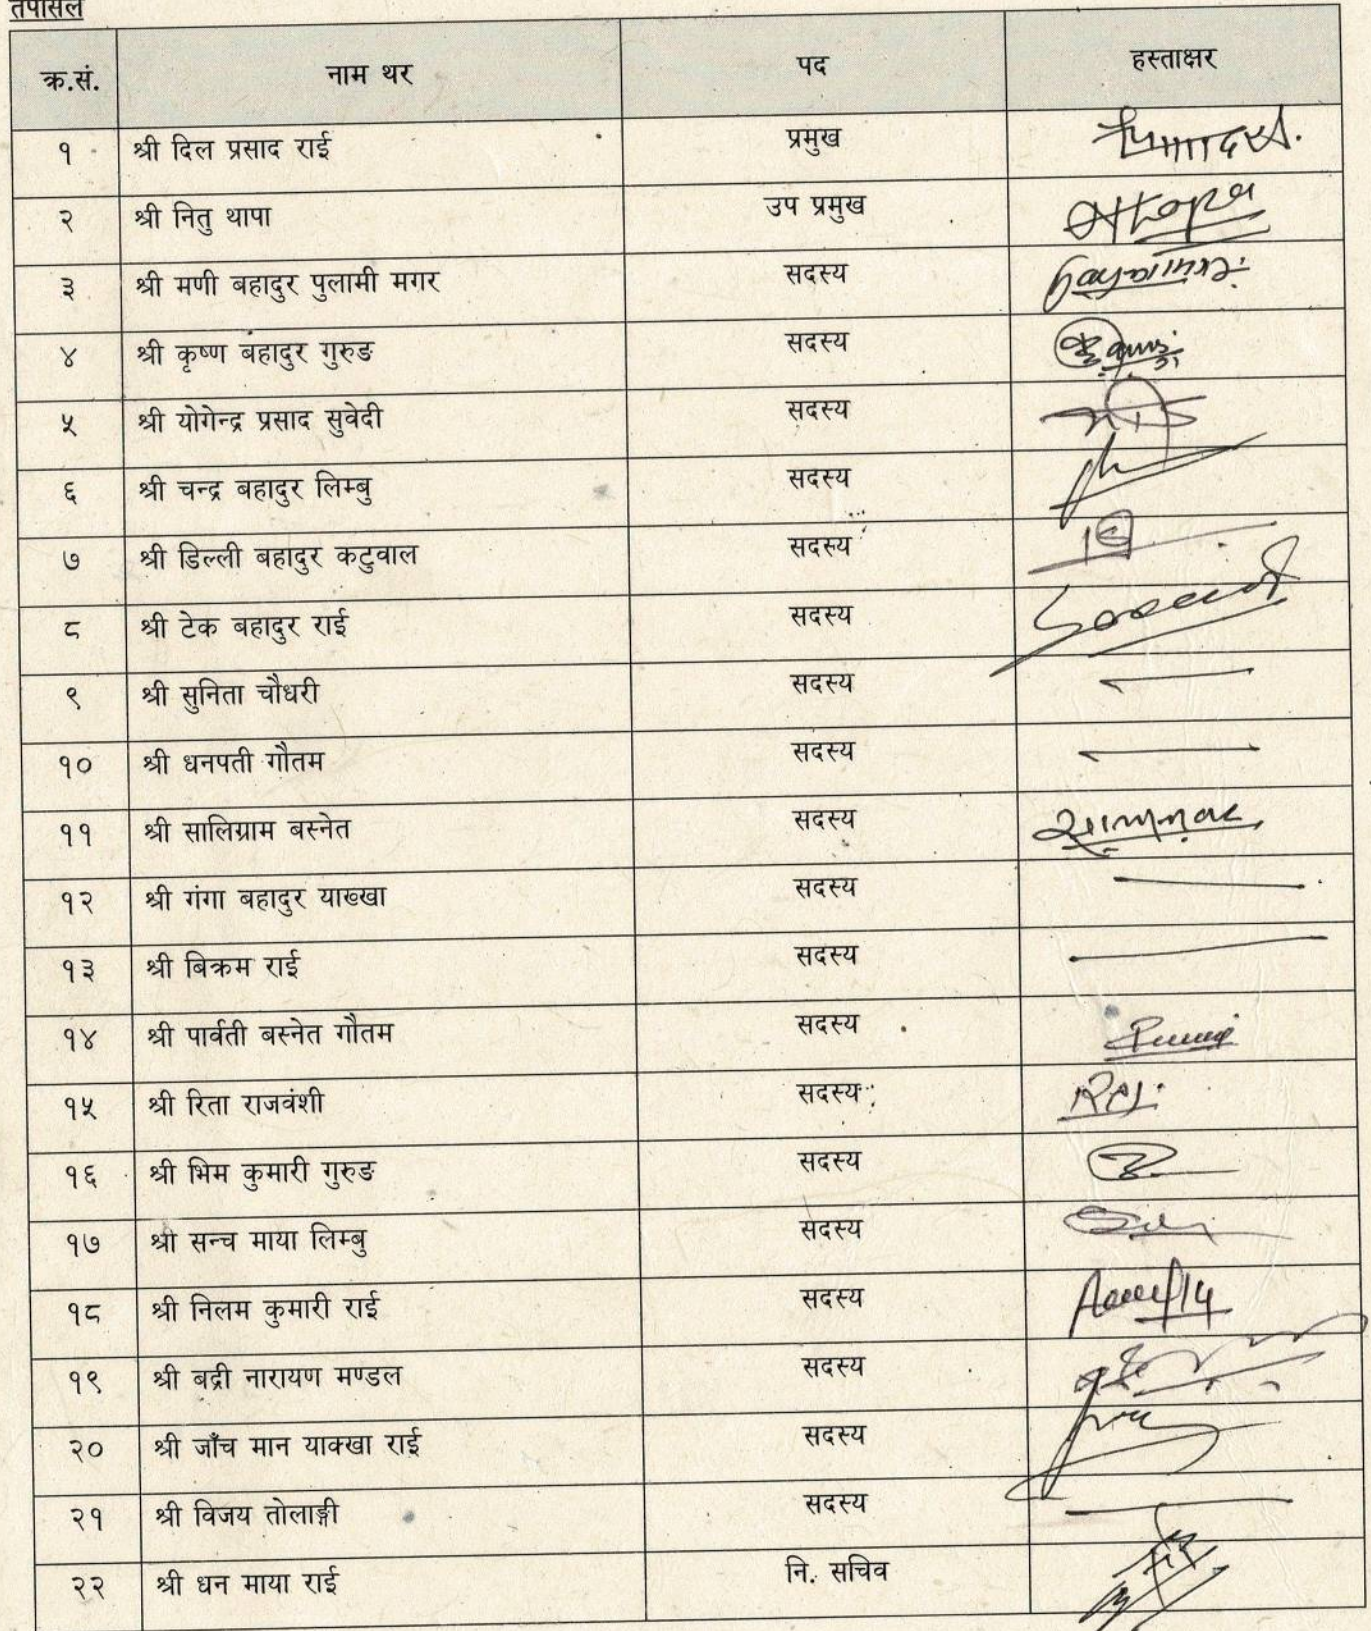 तपसिल
क्र.सं. नाम थर पद हस्ताक्षर
१ श्री दिल प्रसाद राई प्रमुख
२ श्री नितु थापा उप प्रमुख
३ श्री मणी बहादुर पुलामी मगर सदस्य
४ श्री कृष्ण बहादुर गुरुङ सदस्य
५ श्री योगेन्द्र प्रसाद सुवेदी सदस्य
६ श्री चन्द्र बहादुर लिम्बु सदस्य
७ श्री डिल्ली बहादुर कटुवाल सदस्य
८ श्री टेक बहादुर राई सदस्य
९ श्री सुनिता चौधरी सदस्य
१० श्री धनपती गौतम सदस्य
११ श्री सालिग्राम बस्नेत सदस्य
१२ श्री गंगा बहादुर याख्खा सदस्य
१३ श्री बिक्रम राई सदस्य
१४ श्री पार्वती बस्नेत गौतम सदस्य
१५ श्री रिता राजवंशी सदस्य
१६ श्री भिम कुमारी गुरुङ सदस्य
१७ श्री सन्च माया लिम्बु सदस्य
१८ श्री निलम कुमारी राई सदस्य
१९ श्री बद्री नारायण मण्डल सदस्य
२० श्री जाँच मान याक्खा राई सदस्य
२१ श्री विजय तोलाङ्गी सदस्य
२२ श्री धन माया राई नि. सचिव